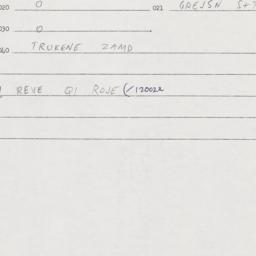 020 0 021 GREJSN S+7
030 0
040 TRUKENE ZAMD
REVE QI ROJE (/12002e